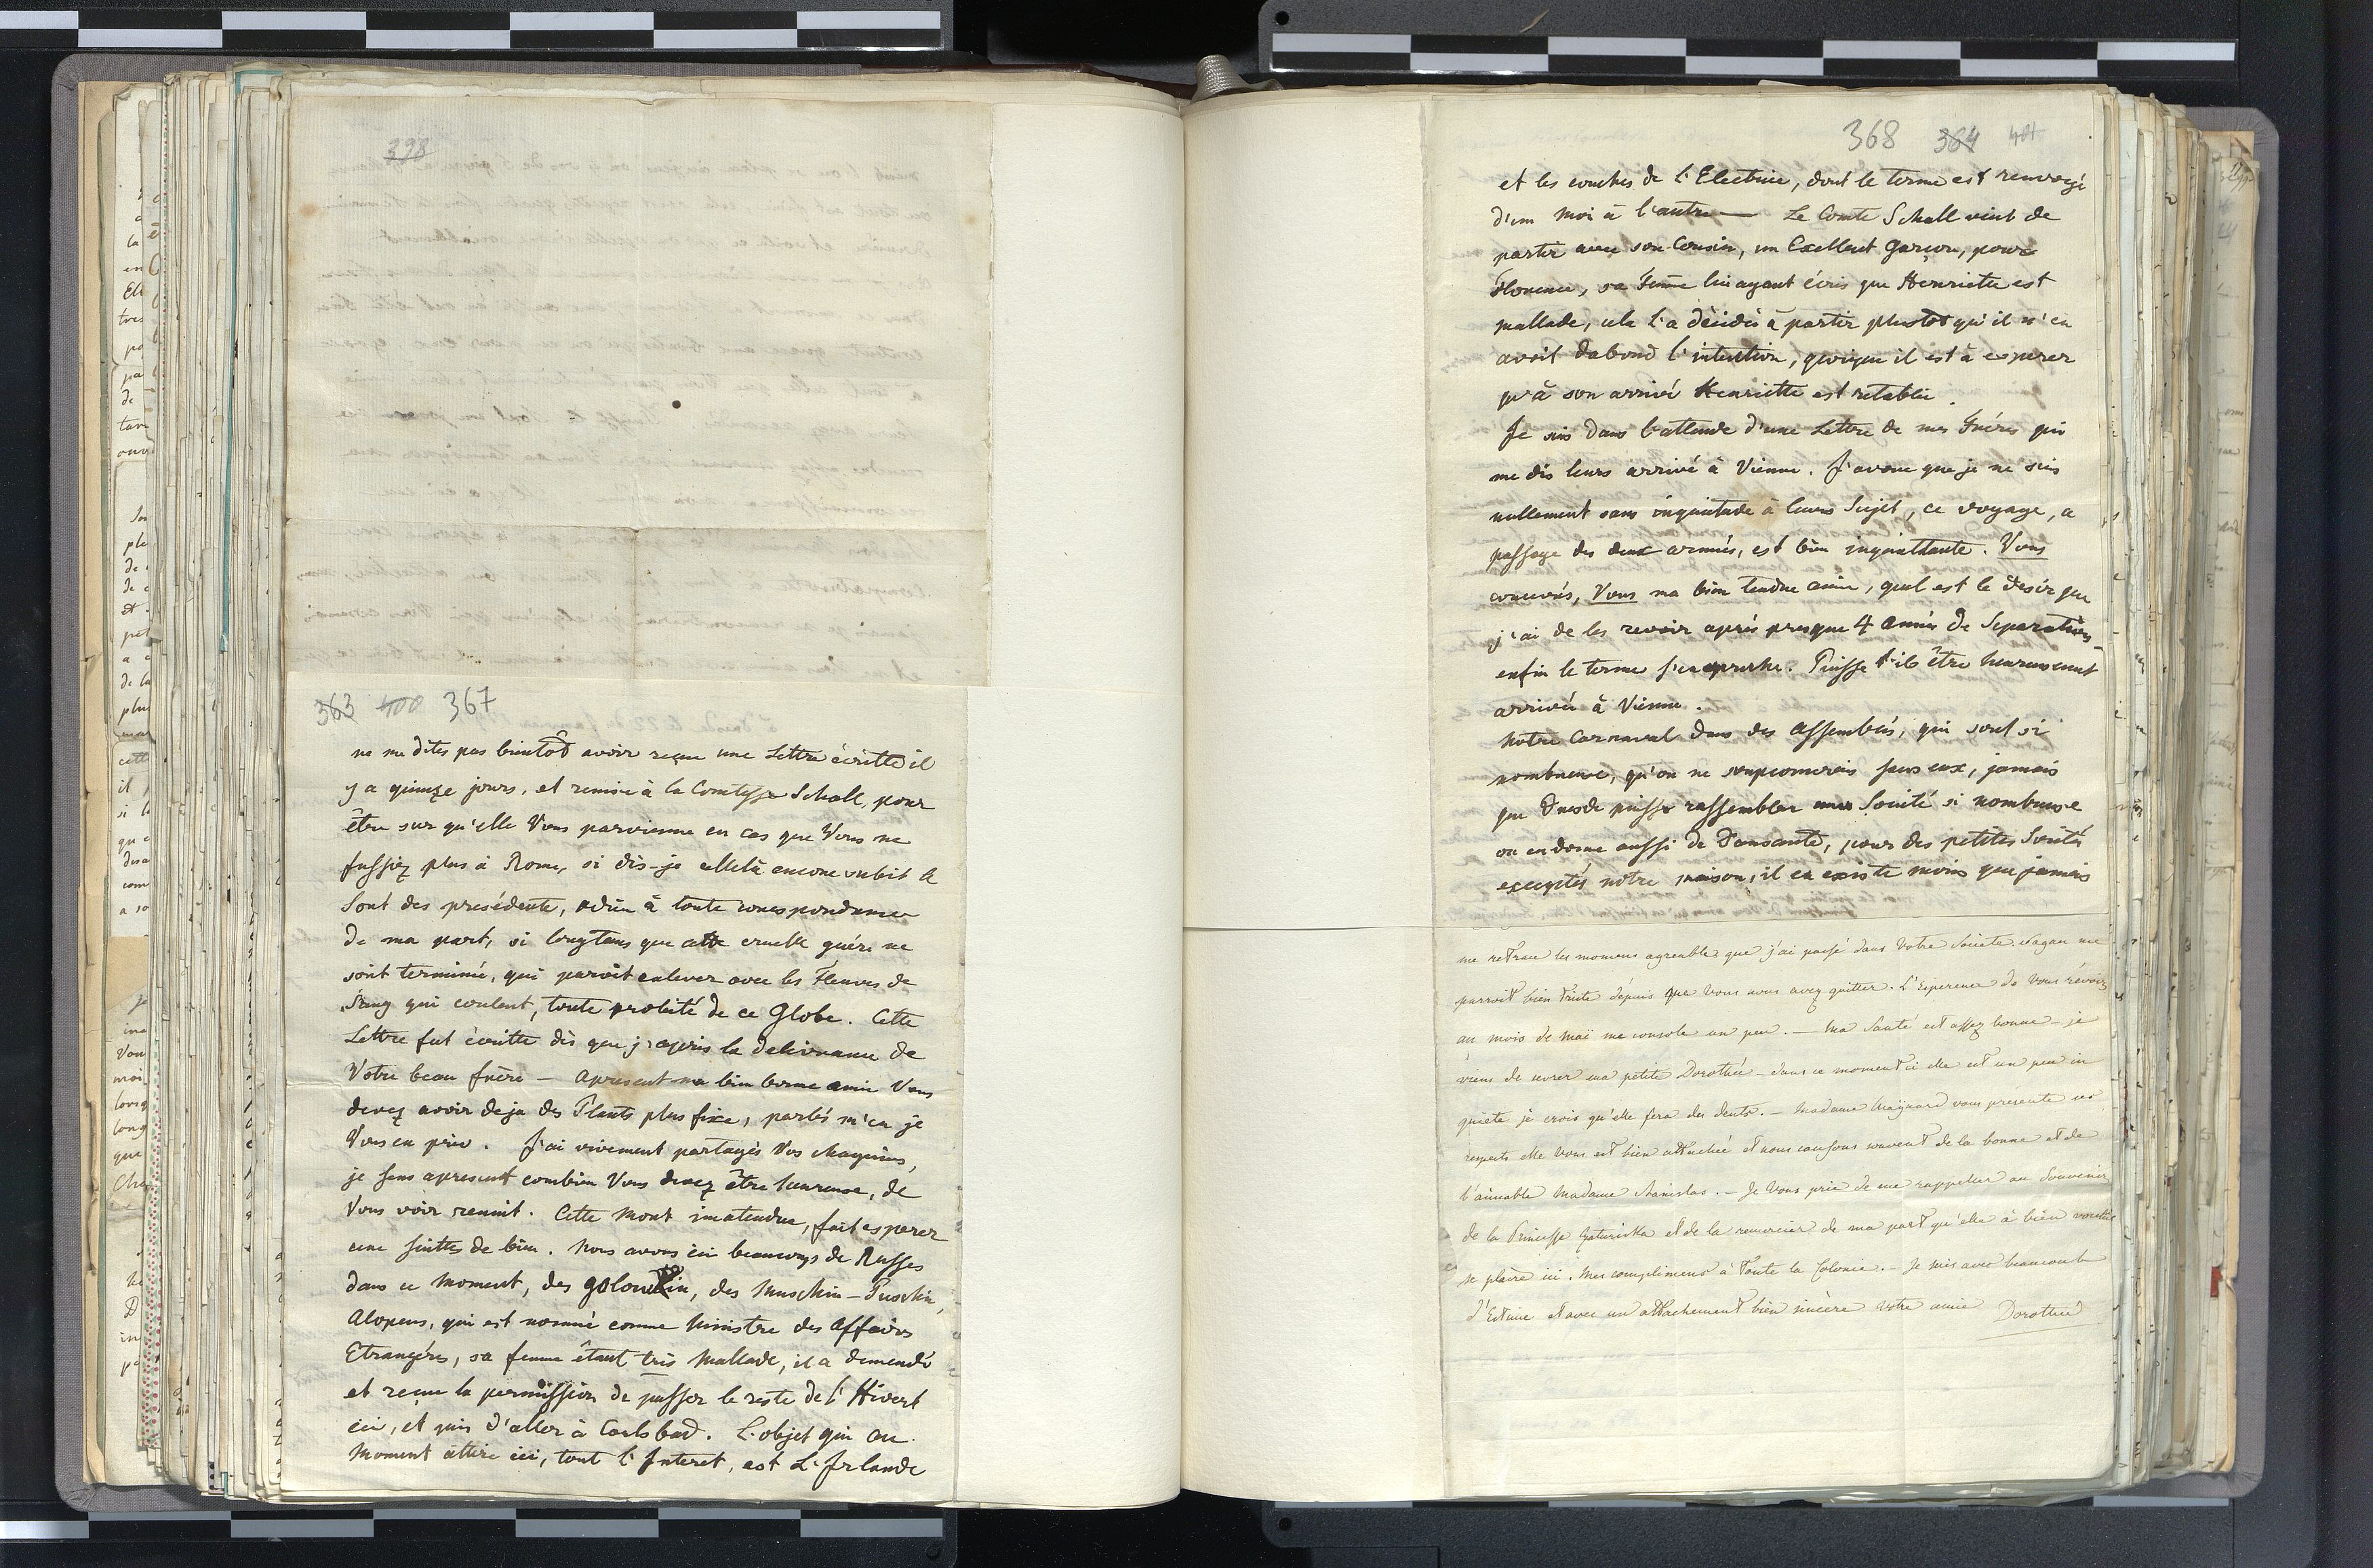 398
363 400 367
ne me dites pas bientôt avoir reçue une Lettre écritte il
y a quinze jours, et remise à la Comtesse Schall, pour
être sur qu'elle Vous parvienne en cas que Vous ne
fussiez plus à Rome, si dis-je cellelà encore subit le
Sont des presédente, adieu à toute corespondance
de ma part, si longtems que cette cruelle guére ne
soit terminée, qui paroit enlever avec les Fleuves de
Sang qui coulent, toute probité de ce Globe. Cette
Lettre fut écritte dès que j'apris la delivrance de
Votre beau frère — apresent ma bien bonne amie Vous
devez avoir deja des Plants plus fixe, parlés m'en je
Vous en prie. J'ai vivement partagés Vos chagrins,
je sens apresent combien Vous devez être heureuse, de
Vous voir reunit. Cette Mort inatendue, fait esperer
une suitte de bien. Nous avons ici beaucoups de Russes
dans ce moment, des Golowkin, des Muschin-Puschin,
Alopeus, qui est nommé comme Ministre des Affaires
Etrangéres, sa femme étant très mallade, il a demendé
et reçue la permission de passer le reste de l'Hivert
ici, et puis d'aller à Carlsbad. L'objet qui au
Moment attire ici, tout l'Interet, est L'Irlande
368 364 401
et les couches de l'Electrice, dont le terme est renvoyé
d'un Moi à l'autre — Le Comte Schall vient de
partir avec son Cousin, un Excellent Garçon, pour
Florence, sa Femme lui ayant écris que Henriette est
mallade, cela l'a décidés à partir plustot qu'il n'en
avoit dabord l'intention, quoique il est à esperer
qu'à son arrivée Henriette est retablie.
Je suis dans l'attende d'une Lettre de mes Fréres qui
me dis leurs arrivé à Vienne. J'avoue que je ne suis
nullement sans inquietude à leurs Sujet, ce voyage, a
passage des deux armées, est bien inquiettante. Vous
concevés, Vous ma bien tendre amie, quel est le desir que
j'ai de les revoir après presque 4 Années de Separation
enfin le terme s'en aproche. Puisse t'ils être heureusement
arrivés à Vienne.
Notre Carnaval dans des Assemblées, qui sont si
nombreuse, qu'on ne soupconnerais sans eux, jamais
que Dresde puisse rassembler une Societé si nombreuse
on en donne aussi de Dansante, pour des petites Societés
exceptés notre maison, il en existe moins que jamais
me retrace les momens agreable que j'ai passé dans Votre Societe. Sagan me
parroit bien triste depuis que Vous nous avez quitter. L'Esperence de Vous révoir
au mois de Maï me console un peu. — Ma Santé est assez bonne — je
viens de sevrer ma petite Dorothée — dans ce moment ci elle est un peu in
quiete je crois qu'elle fera des dents. — Madame présente ses
respects elle Vous est bien attachée et nous causons souvent de la bonne et de
l'aimable Madame Stanislas. — Je Vous prie de me rappeller au Souvenir
de la Princesse et de la remercier de ma part qu'elle à bien voulue
se plaire ici. Mes complimens à toute la Colonie. — Je suis avec beaucoub
d'Estime et avec un attachement bien sincère Votre amie Dorothée